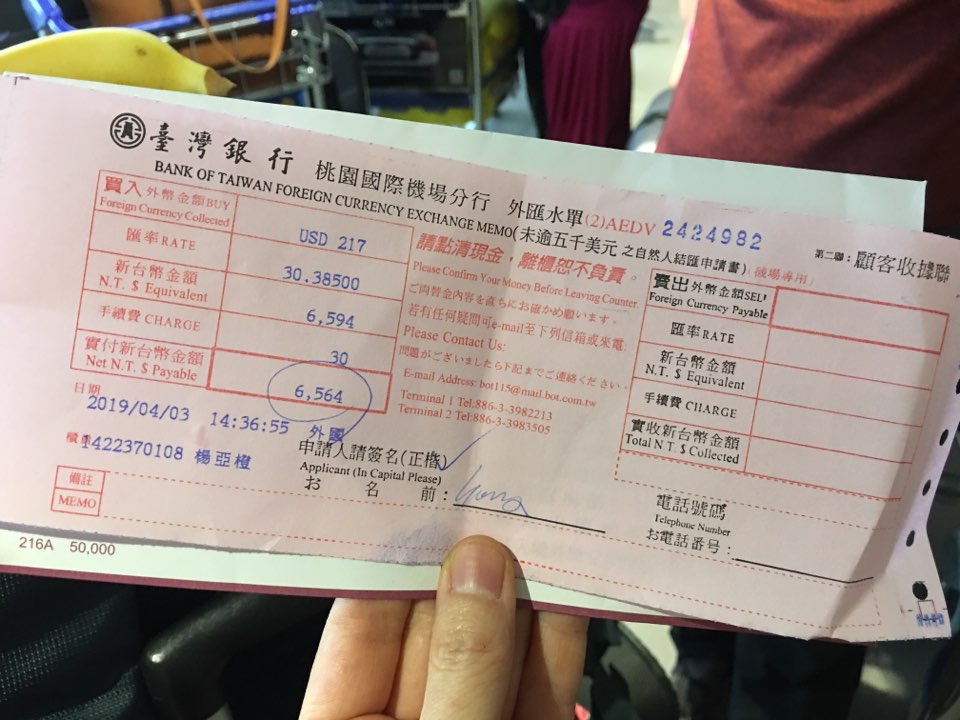 臺灣銀行 桃園國際機場分行 外匯水單(2)AEDV 2424982
BANK OF TAIWAN FOREIGN CURRENCY EXCHANGE MEMO(未逾五千美元之自然人結匯申請書)(機場專用)
第二聯：顧客收據聯
買入外幣金額BUY
Foreign Currency Collected
USD 217
匯率RATE
30.38500
新台幣金額
N.T. $ Equivalent
6,594
手續費 CHARGE
30
實付新台幣金額
Net N.T. $ Payable
6,564
請點清現金，離櫃恕不負責。
Please Confirm Your Money Before Leaving Counter.
ご両替金內容を直ちにお確かめ願います。
若有任何疑問可e-mail至下列信箱或來電.
Please Contact Us:
問題がございましたら下記までご連絡ください.
E-mail Address: bot115@mail.bot.com.tw
Terminal 1 Tel:886-3-3982213
Terminal 2 Tel:886-3-3983505
賣出外幣金額SEL
Foreign Currency Payable
匯率RATE
新台幣金額
N.T. $ Equivalent
手續費 CHARGE
實收新台幣金額
Total N T. $ Collected
日期
2019/04/03 14:36:55 外國
1422370108 楊亞橙
備註
MEMO
申請人請簽名(正楷)
Applicant (In Capital Please)
お名前：
電話號碼
Telephone Number
お電話番号：
216A 50,000